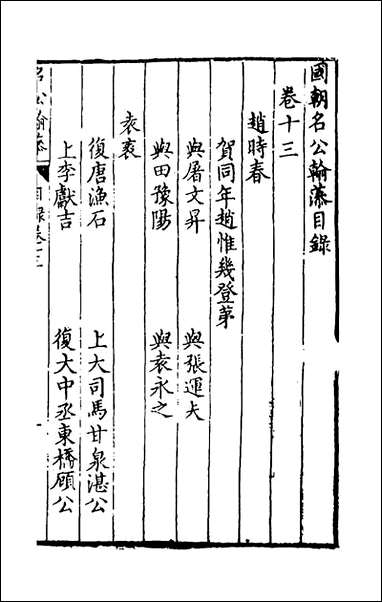 國朝名公翰藻目錄
卷十三
趙時春
賀同年趙惟幾登第
與屠文昇 與張運夫
與田豫陽 與袁永之
袁袠
復唐漁石 上大司馬甘泉湛公
上李獻吉 復大中丞東橋顧公
名公翰藻 目錄卷十三